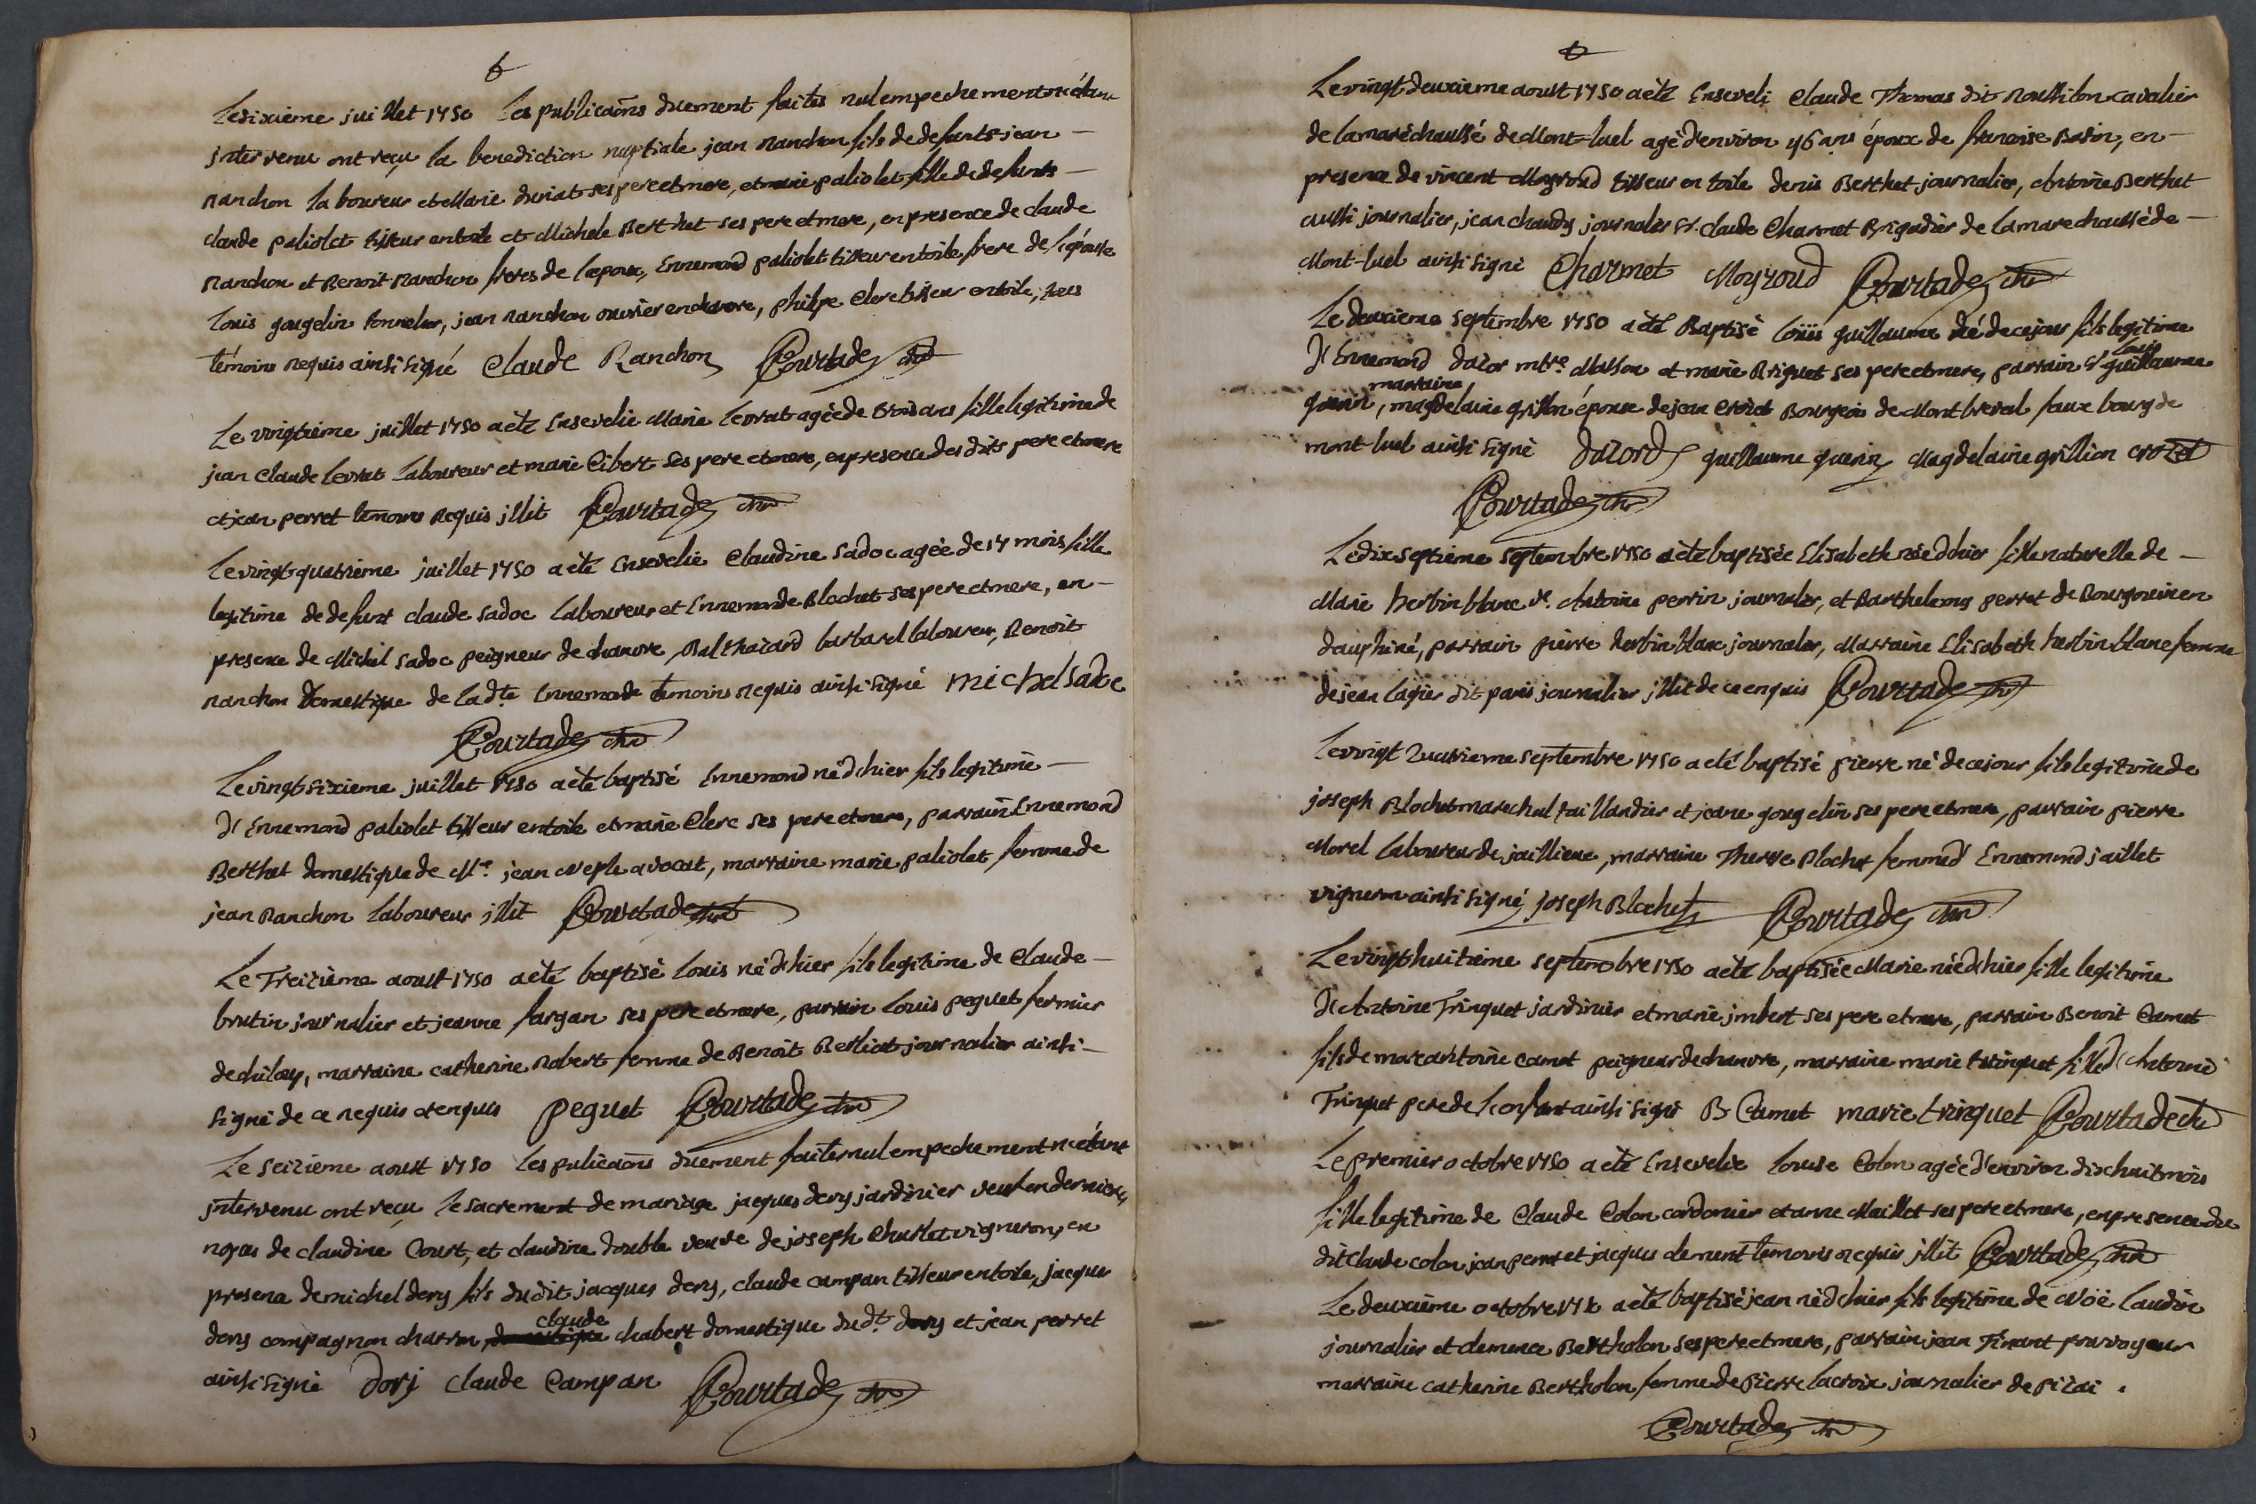 6
Le dixième juillet 1750 les publicaõns duement faites nul empechement n'étant
intervenu ont reçu la benediction nuptiale jean Ranchon fils de defunts jean
Ranchon laboureur et Marie duriat ses pere et mere, et marie paliolet fille de defunts
claude paliolet tisseur en toile et Michele Berthet ses pere et mere, en presence de claude
Ranchon et Benoit Ranchon freres de l'epoux, Ennemond paliolet tisseur en toile frere de l'épouse
Louis gougelin tonnelier, jean Ranchon ouvrier en chanvre, philipe Clerc tisseur en toile, tous
témoins requis ainsi signé Claude Ranchon Courtade
Le vingtième juillet 1750 a été Ensevelie Marie Levrat agée de trois ans fille legitime de
jean Claude Levrat Laboureur et marie Cibert ses pere et mere, en presence des dits pere et mere
et jean perret temoins requis illit Courtade
Le vingt quatrième juillet 1750 a été Ensevelie Claudine Sadoc agée de 14 mois fille
legitime de defunt claude Sadoc Laboureur et Ennemonde Blochet ses pere et mere, en
presence de Michel Sadoc peigneur de chanvre, Balthazard barbarel laboureur, Benoit
Ranchon domestique de lad.te Ennemonde temoins requis ainsi signé michel sadoc
Courtade
Le vingt sixieme juillet 1750 a été baptisé Ennemond né d'hier fils legitime
d'Ennemond paliolet tisseur en toile et marie Clerc ses pere et mere, parrain Ennemond
Berthet domestique de M.e jean Neple avocat, marraine marie paliolet femme de
jean Ranchon Laboureur illit Courtade
Le Treizième aoust 1750 a été baptisé Louis né d'hier fils legitime de Claude
brutin journalier et jeanne fargan ses pere et mere, parrain Louis peguet fermier
de chiloup, marraine catherine Robert femme de Benoit Berliat journalier ainsi
signé de ce requis et enquis peguet Courtade
Le Seizieme aoust 1750 les pulicaõns duement faites nul empechement n'etant
intervenu ont reçu le sacrement de mariage jacques dory jardinier veuf en dernieres
noces de claudine Court, et claudine double veuve de joseph Charlet vigneron, en
presence de michel dory fils du dit jacques dory, claude campan tisseur en toile, jacque
claude
dory compagnon charron, chabert domestique dud.t dory et jean perret
ainsi signé Dorj Claude Campan Courtade
6
Le vingt deuxieme aoust 1750 a été Enseveli Claude Thomas dit Roussillon cavalier
de la maréchaussé de Mont-luel agé d'environ 46 ans époux de francoise Basin, en
presence de vincent Moyroud tisseur en toile denis Berthet journalier, Antoine Berthet
aussi journalier, jean chaudy journalier Sr. Claude Charmet Brigadier de la marechaussé de
Mont-luel ainsi signé Charmet Moyroud Courtade
Le deuxieme septembre 1750 a été Baptisé Loüis guillaume né de ce jour fils legitime
Louis
d'Ennemond dazor mtre. Masson et marie Briguet ses pere et mere, parrain Sr guillaume
marraine
guerin, magdelaine grillon épouse de jean Crozet Bourgeois de Montbreval faux bourg de
mont-luel ainsi signé Dazord guillaume guerin Magdelaine grillion crozet
Courtade
Le dix septième septembre 1750 a été baptisée Elisabeth née d'hier fille naturelle de
Marie herbin blanc Sr. Antoine perrin journalier, et Barthelemy perret de Bourgoin en
dauphiné, parrain pierre herbin blanc journalier, Marraine Elisabeth herbin blanc femme
de jean lagier dit paris journalier illit de ce enquis Courtade
Le vingt quatrieme septembre 1750 a été baptisé pierre né de ce jour fils legitime de
joseph Blochet marechal taillandier et jeane gougelin ses pere et mere, parrain pierre
Morel Laboureur de jaillieux, marraine Therese Blochet femme d'Ennemond jaillet
vigneron ainsi signé joseph Blochet Courtade
Le vingt huitieme septembre 1750 a été baptisée Marie née d'hier fille legitime
d'Antoine Trinquet jardinier et marie jmbert ses pere et mere, parrain Benoit Camet
fils de marc antoine camet peigneur de chanvre, marraine marie trinquet fille d'Antoine
Trinquet pere de l'enfant ainsi signé B Camet marie trinquet Courtade
Le premier octobre 1750 a été Ensevelie Louise Colon agée d'environ dix huit mois
fille legitime de Claude Colon cordonier et anne Maillet ses pere et mere, en presence du
dit Claude colon jean perret et jacques clement temoins requis illit Courtade
Le deuxième octobre 1750 a été baptisé jean né d'hier fils legitime de Noë Laudin
journalier et clemence Bertholon ses pere et mere, parrain jean Tinant pourvoyeur
marraine catherine Bertholon femme de pierre lacroix journalier de pizai.
Courtade